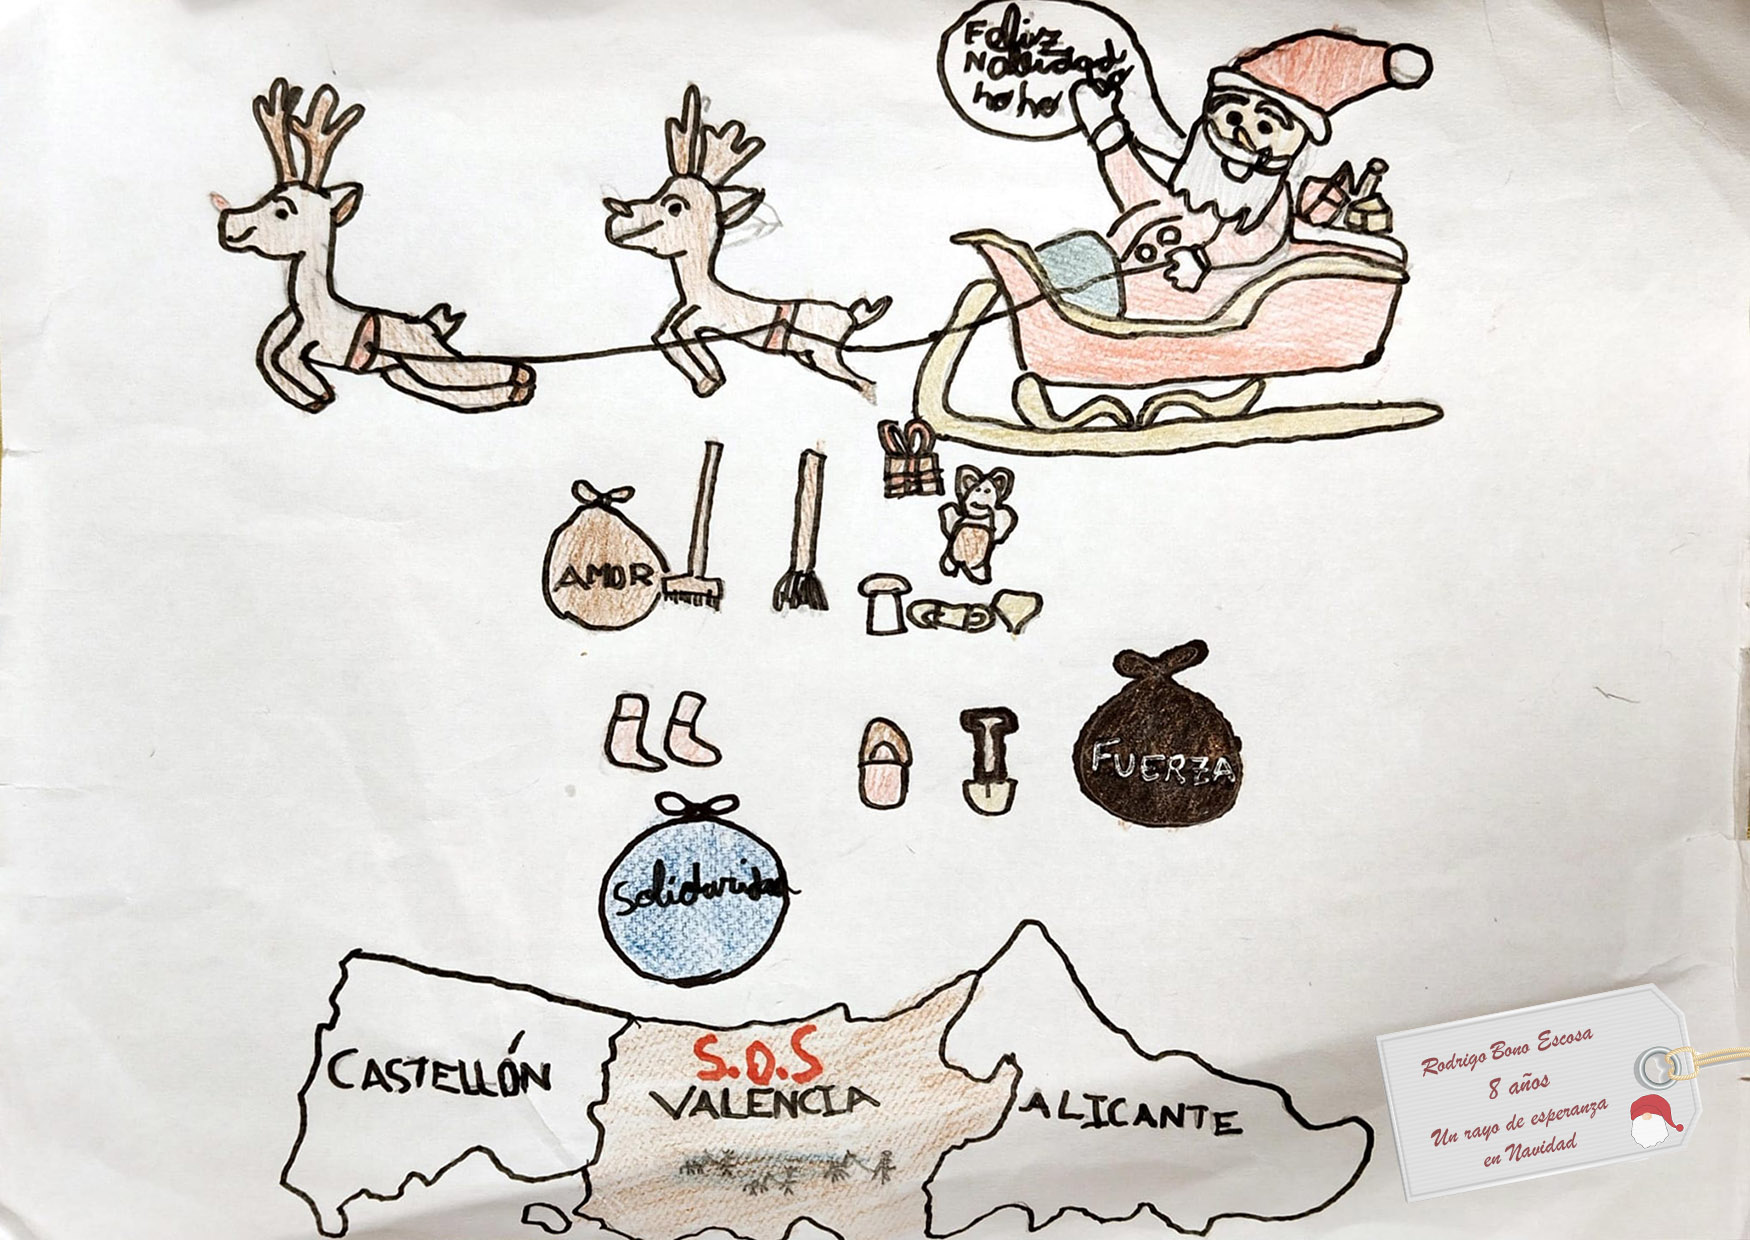 Feliz
Navidad
ho ho
AMOR
FUERZA
Solidaridad
CASTELLÓN
S.O.S
VALENCIA
ALICANTE
Rodrigo Bono Escosa
8 años
Un rayo de esperanza
en Navidad